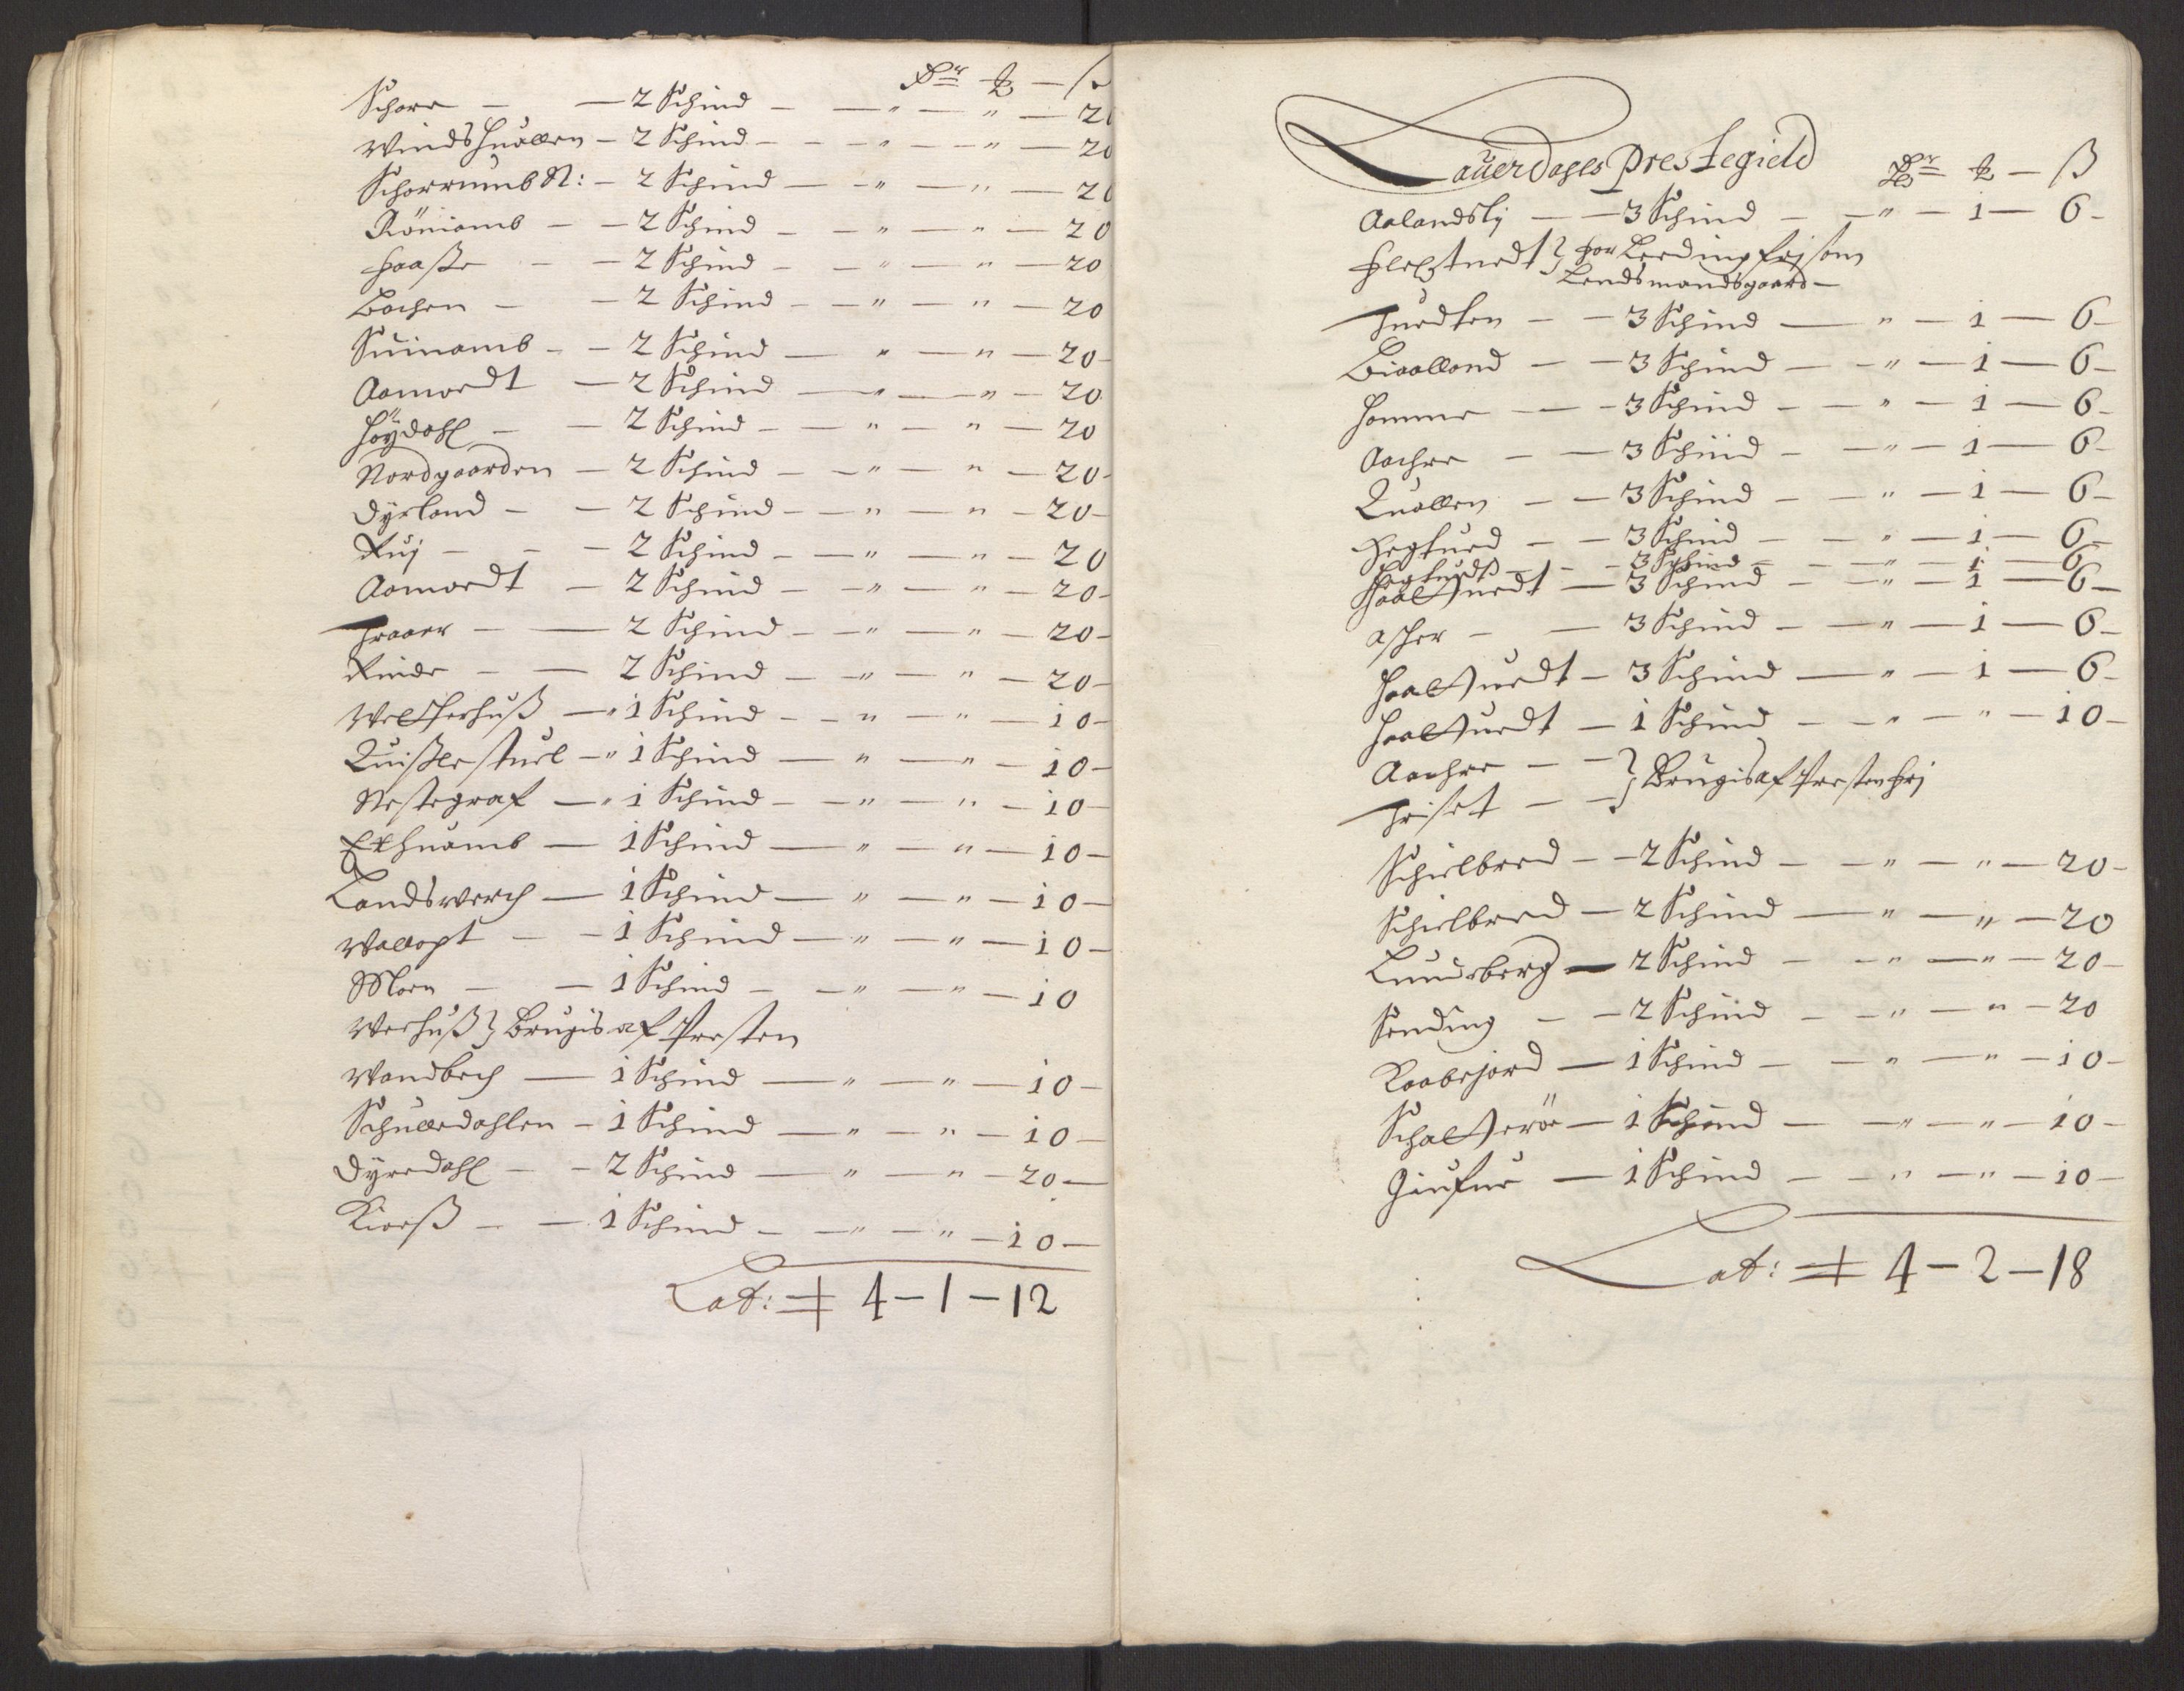 Dr — — ß
Schore — — 2 Schind — — " — " — 20
Windshuallen — 2 Schind — — " — " — 20
Schorrumb N: — 2 Schind — " — " — 20
Röniomb — — 2 Schind — — " — " — 20
Haaste — — 2 Schind — — " — " — 20
Bochen — — 2 Schind — — " — " — 20
Suinomb — — 2 Schind — " — " — 20
Aamoedt — 2 Schind — " — " — 20
Höydahl — — 2 Schind — — " — " — 20
Nordgaarden — 2 Schind — — " — " — 20
Dyrland — — 2 Schind — — " — " — 20
Ruj — — — 2 Schind — — " — " — 20
Aamoedt — 2 Schind — — " — " — 20
Traaer — — 2 Schind — — " — " — 20
Rinde — — 2 Schind — — " — " — 20
Welterhuß — " 1 Schind — — " — " — 10
Quißlestuel — " 1 Schind — " — " — 10
Nestegraf — " 1 Schind — — " — " — 10
Exhuomb — 1 Schind — " — " — 10
Landswerch — 1 Schind — " — " — 10
Wallopt — — 1 Schind — " — " — 10
Moen — — 1 Schind — — " — " — 10
Weehuß } Brugis af Presten
Wandbech — 1 Schind — " — " — 10
Schulledahlen — 1 Schind — " — " — 10
Dyredahl — — 2 Schind — " — " — 20
Kioeß — — 1 Schind — — " — " — 10
Lat: 4 — 1 — 12
Lauerdahls Prestegield
Dr — — ß
Aalandslj — — 3 Schind — — " — 1 — 6
Flextuedt } for Leeding frj som
Lendsmandsgaard —
Tuedten — — 3 Schind — " — 1 — 6
Bioalland — — 3 Schind — — " — 1 — 6
Homme — — 3 Schind — — " — 1 — 6
Aachre — — 3 Schind — — " — 1 — 6
Quallen — — 3 Schind — — " — 1 — 6
Hegtued — — 3 Schind — — " — 1 — 6
Hegtuedt — — 3 Schind — — " — 1 — 6
Haaltuedt — 3 Schind — — " — 1 — 6
Asher — — 3 Schind — — " — 1 — 6
Haaltuedt — 3 Schind — " — 1 — 6
Haaltuedt — 1 Schind — — " — " — 10
Aachre — — } Brugis af Presten frj
Triset — —
Schielbred — — 2 Schind — — " — " — 20
Schielbred — 2 Schind — " — " — 20
Lunderberg — 2 Schind — — " — " — 20
Sending — — 2 Schind — — " — " — 20
Raabejord — 1 Schind — — " — " — 10
Schalteröe — 1 Schind — — " — " — 10
Giufue — 1 Schind — — " — " — 10
Lat: 4 — 2 — 18